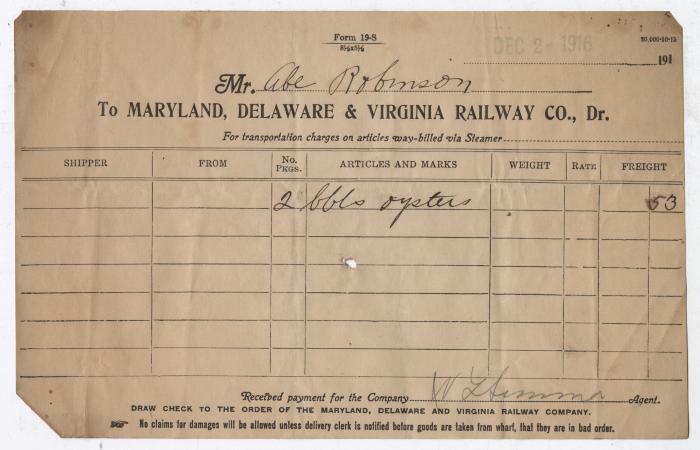 Form 19-S
8½x5½
20,000-10-15
DEC 2- 1916
191
Mr. Abe Robinson
To MARYLAND, DELAWARE & VIRGINIA RAILWAY CO., Dr.
For transportation charges on articles way-billed via Steamer
SHIPPER FROM No. PKGS. ARTICLES AND MARKS WEIGHT RATE FREIGHT
2 bbls oysters 53
Received payment for the Company Agent.
DRAW CHECK TO THE ORDER OF THE MARYLAND, DELAWARE AND VIRGINIA RAILWAY COMPANY.
☞ No claims for damages will be allowed unless delivery clerk is notified before goods are taken from wharf, that they are in bad order.